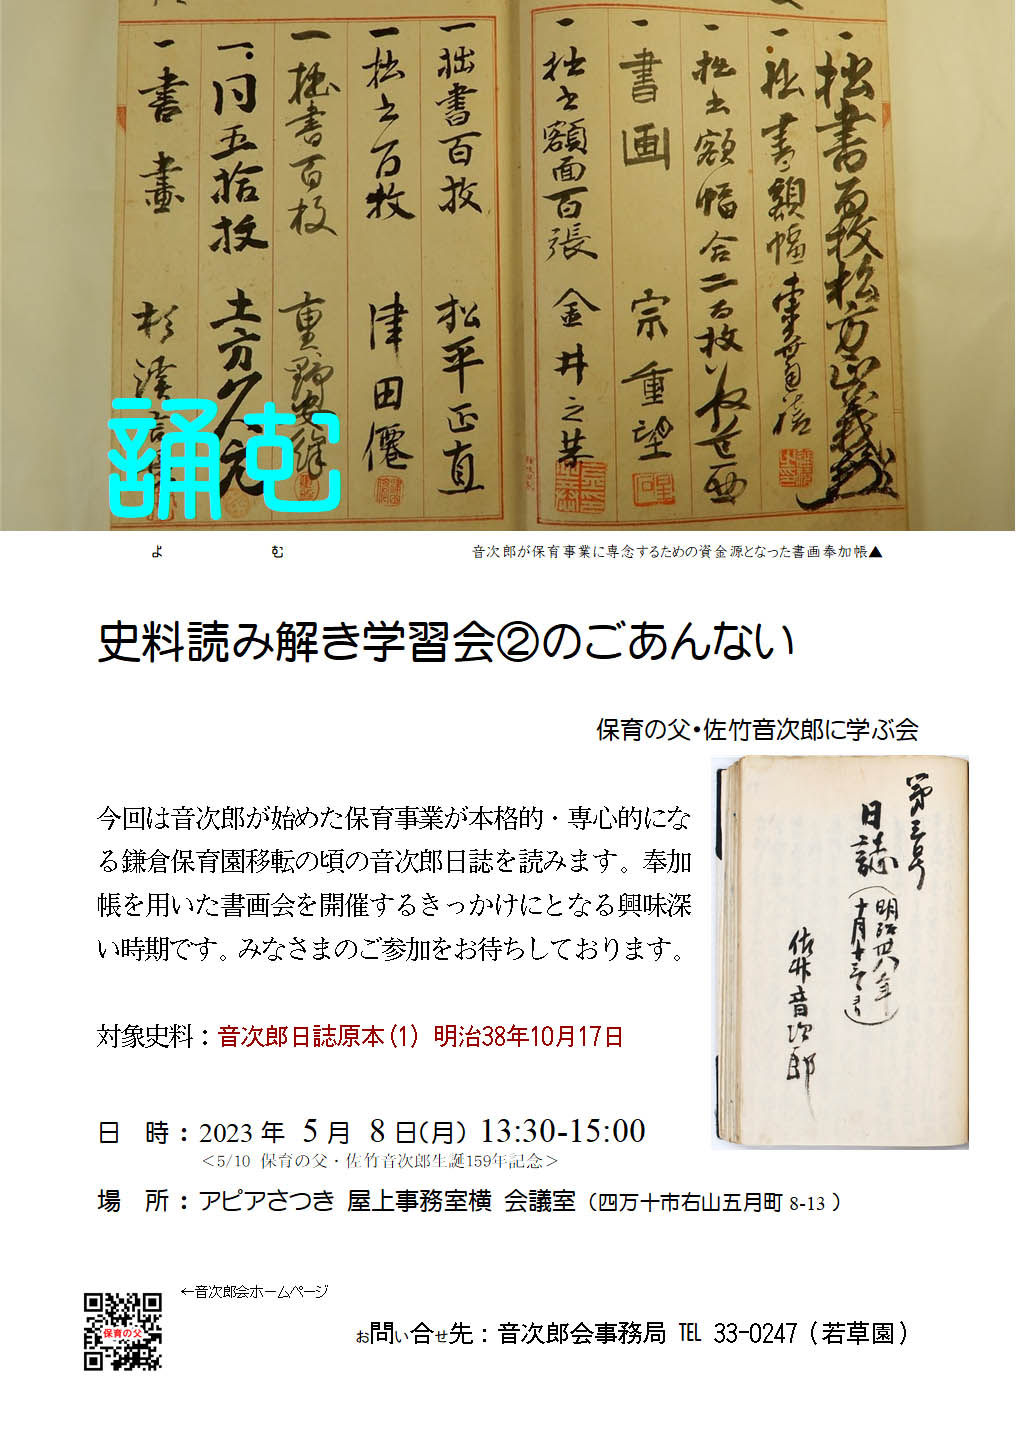 一 拙書百枚 松方正義
一 拙書額幅
一 拙書額幅合二百枚
一 書画 宗重望
一 拙書額面百張 金井之恭
一 拙書百枚 松平正直
一 拙書百枚 津田僊
一 拙書百枚 重野安繹
一 同五拾枚 土方久元
一 書畫
誦む
よむ
音次郎が保育事業に専念するための資金源となった書画奉加帳▲
史料読み解き学習会②のごあんない
保育の父・佐竹音次郎に学ぶ会
今回は音次郎が始めた保育事業が本格的・専心的にな
る鎌倉保育園移転の頃の音次郎日誌を読みます。奉加
帳を用いた書画会を開催するきっかけにとなる興味深
い時期です。みなさまのご参加をお待ちしております。
第三号
日誌
（明治卅八年
十月十三日ヨリ）
佐竹音次郎
対象史料：音次郎日誌原本(1) 明治38年10月17日
日 時：2023年 5月 8日(月) 13:30-15:00
＜5/10 保育の父・佐竹音次郎生誕159年記念＞
場 所：アピアさつき 屋上事務室横 会議室（四万十市右山五月町8-13）
←音次郎会ホームページ
保育の父
お問い合せ先：音次郎会事務局 TEL 33-0247（若草園）